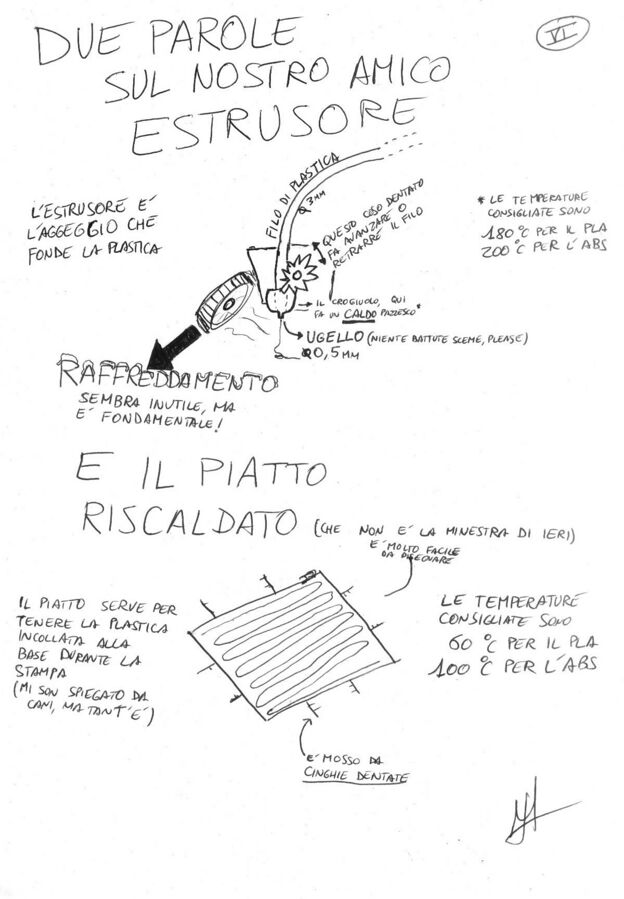 VI
DUE PAROLE
SUL NOSTRO AMICO
ESTRUSORE
L'ESTRUSORE É
L'AGGEGGIO CHE
FONDE LA PLASTICA
FILO DI PLASTICA
Ø 3MM
QUESTO COSO DENTATO
FA AVANZARE O
RETRARRE IL FILO
* LE TEMPERATURE
CONSIGLIATE SONO
180°C PER IL PLA
200°C PER L'ABS
IL CROGIUOLO, QUI
FA UN CALDO PAZZESCO*
UGELLO (NIENTE BATTUTE SCEME, PLEASE)
Ø0,5MM
RAFFREDDAMENTO
SEMBRA INUTILE, MA
É FONDAMENTALE!
E IL PIATTO
RISCALDATO (CHE NON É LA MINESTRA DI IERI)
É MOLTO FACILE
DA DISEGNARE
IL PIATTO SERVE PER
TENERE LA PLASTICA
INCOLLATA ALLA
BASE DURANTE LA
STAMPA
(MI SON SPIEGATO DA
CANI, MA TANT'É)
LE TEMPERATURE
CONSIGLIATE SONO
60 °C PER IL PLA
100°C PER L'ABS
É MOSSO DA
CINGHIE DENTATE